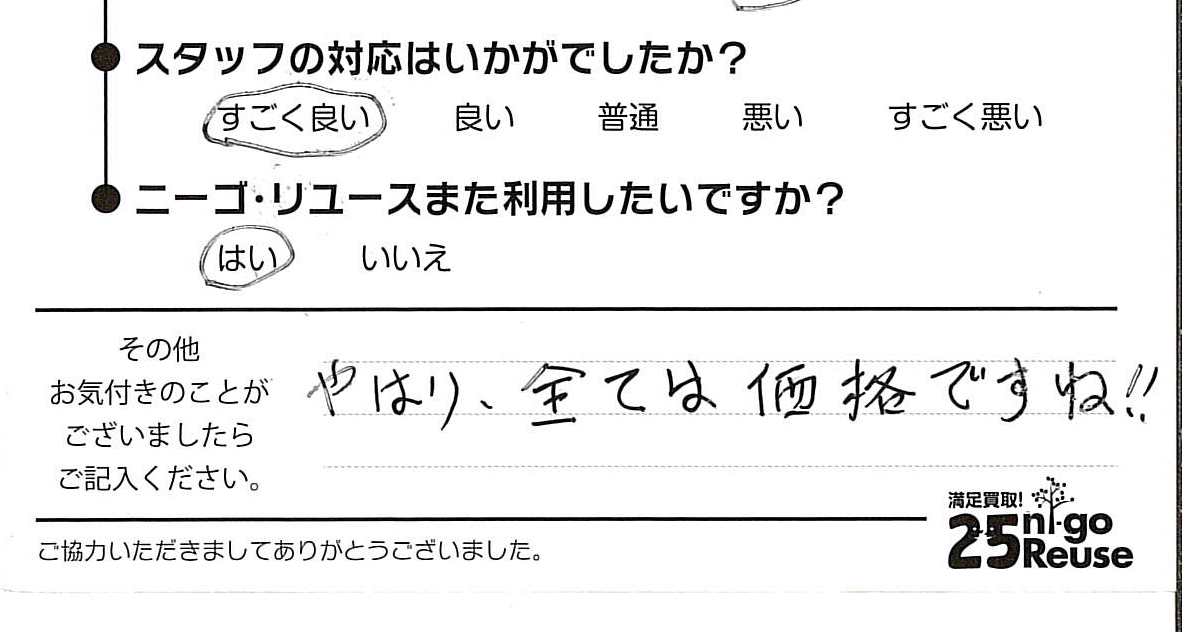 スタッフの対応はいかがでしたか？
すごく良い 良い 普通 悪い すごく悪い
ニーゴ・リユースまた利用したいですか？
はい いいえ
その他
お気付きのことが
ございましたら
ご記入ください。
やはり、全ては価格ですね!!
満足買取!
25 ni-go
Reuse
ご協力いただきましてありがとうございました。